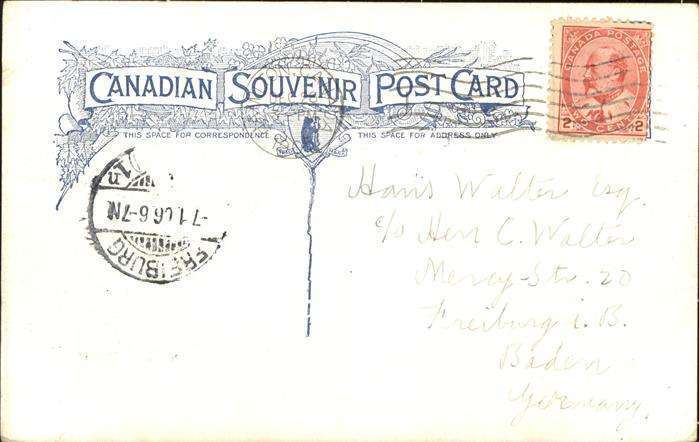 CANADIAN SOUVENIR POST CARD
THIS SPACE FOR CORRESPONDENCE
THIS SPACE FOR ADDRESS ONLY
CANADA POSTAGE
2 CENTS 2
FREIBURG
-7.1.06.6-7N
Hans Walter Esq.
c/o Herr C. Walter
Mercy-Str. 20
Freiburg i. B.
Baden
Germany.